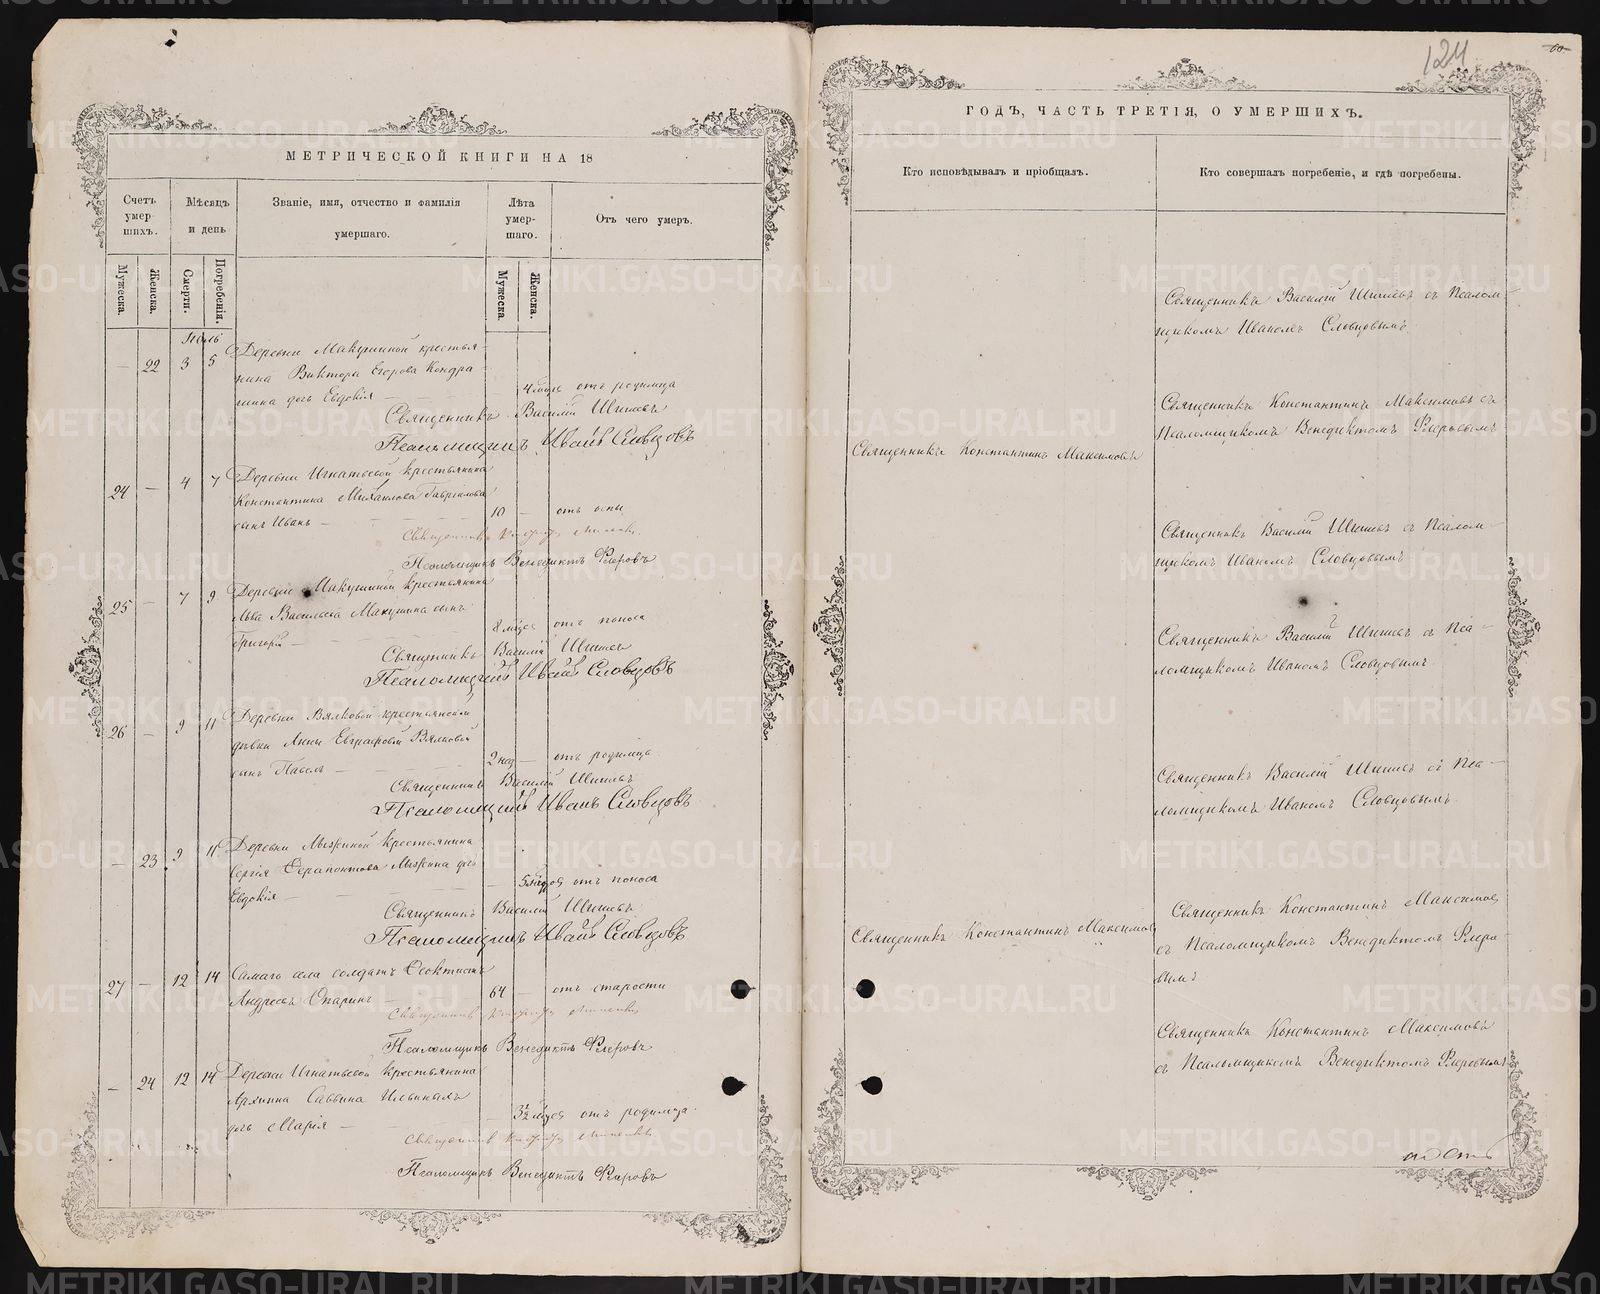 МЕТРИЧЕСКОЙ КНИГИ НА 18
Счетъ умер-шихъ.
Мѣсяцъ и день
Званіе, имя, отчество и фамилія умершаго.
Лѣта умер-шаго.
Отъ чего умеръ.
Мужеска.
Женска.
Смерти.
Погребенія.
Мужеска.
Женска.
Іюль
— 22 3 5 Деревни Макушиной крестья-
нина Виктора Егорова Кондра-
шина дочь Евдокія — 4 мѣся отъ родимца
Священникъ Василій Шишевъ
Псаломщикъ Иванъ Словцовъ
24 — 4 7 Деревни Игнатьевой крестьянина
Константина Михаилова Гаврилова
сынъ Иванъ — 10 — отъ оспы
Священникъ
Псаломщикъ Венедиктъ Флеровъ
25 — 7 9 Деревни Макушиной крестьянина
Льва Васильева Макушина сынъ
Григорій — 8 мѣся отъ поноса
Священникъ Василій Шишевъ
Псаломщикъ Иванъ Словцовъ
26 — 9 11 Деревни Вялковой крестьянской
дѣвки Анны Евграфовой Вялковой
сынъ Павелъ — 2 нед — отъ родимца
Священникъ Василій Шишевъ
Псаломщикъ Иванъ Словцовъ
— 23 9 11 Деревни Мызиной крестьянина
Сергія Ферапонтова Мызина дочь
Евдокія — отъ поноса
Священникъ Василій Шишевъ
Псаломщикъ Иванъ Словцовъ
27 — 12 14 Самаго села солдатъ Феоктистъ
Андреевъ Опаринъ — 64 — отъ старости
Священникъ
Псаломщикъ Венедиктъ Флеровъ
— 24 12 14 Деревни Игнатьевой крестьянина
Архипа Саввина Ильиныхъ
дочь Марія — 3½ мѣся отъ родимца
Священникъ
Псаломщикъ Венедиктъ Флеровъ
124
60
ГОДЪ, ЧАСТЬ ТРЕТІЯ, О УМЕРШИХЪ.
Кто исповѣдывалъ и пріобщалъ.
Кто совершалъ погребеніе, и гдѣ погребены.
Священникъ Василій Шишевъ съ Псалом-
щикомъ Иваномъ Словцовымъ
Священникъ Константинъ Максимовъ
Священникъ Константинъ Максимовъ съ
Псаломщикомъ Венедиктомъ Флеровымъ
Священникъ Василій Шишевъ съ Псалом-
щикомъ Иваномъ Словцовымъ
Священникъ Василій Шишевъ съ Пса-
ломщикомъ Иваномъ Словцовымъ
Священникъ Василій Шишевъ съ Пса-
ломщикомъ Иваномъ Словцовымъ.
Священникъ Константинъ Максимовъ
Священникъ Константинъ Максимовъ
съ Псаломщикомъ Венедиктомъ Флеро-
вымъ
Священникъ Константинъ Максимовъ
съ Псаломщикомъ Венедиктомъ Флеровымъ
METRIKI.GASO-URAL.RU